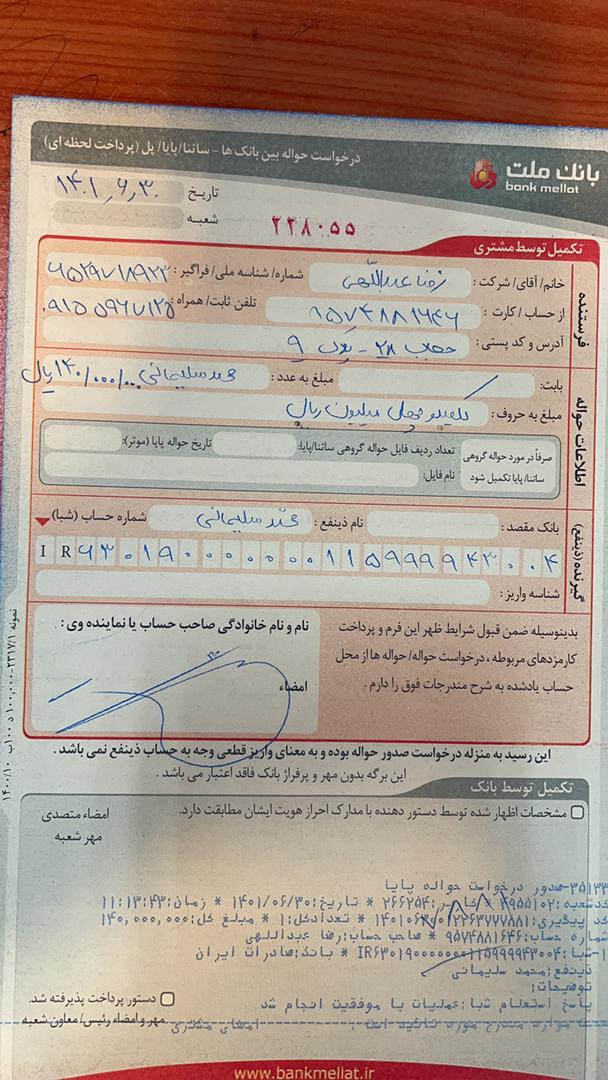 درخواست حواله بین بانک ها - ساتنا/پایا/پل (پرداخت لحظه ای)
بانک ملت
bank mellat
تاریخ ۱۴۰۱,۶,۳۰
شعبه
۲۲۸۰۵۵
تکمیل توسط مشتری
فرستنده
خانم/آقای/شرکت: رضا عبداللهی شماره/شناسه ملی/فراگیر:
از حساب/کارت: ۹۵۷۴۸۸۱۶۴۶ تلفن ثابت/همراه: ۰۹۱۵۵۹۶۷۱۲۵
آدرس و کد پستی:
اطلاعات حواله
بابت: مبلغ به عدد: محمد سلیمانی ۱۴۰/۰۰۰/۰۰۰ ریال
مبلغ به حروف: یکصد و چهل میلیون ریال
صرفاً در مورد حواله گروهی ساتنا/پایا تکمیل شود
تعداد ردیف فایل حواله گروهی ساتنا/پایا: تاریخ حواله پایا (موثر):
نام فایل:
گیرنده (ذینفع)
بانک مقصد: نام ذینفع: محمد سلیمانی شماره حساب (شبا)
IR ۶۳۰۱۹۰۰۰۰۰۰۰۱۱۵۹۹۹۹۴۳۰۰۴
شناسه واریز:
بدینوسیله ضمن قبول شرایط ظهر این فرم و پرداخت
کارمزدهای مربوطه، درخواست حواله/حواله ها از محل
حساب یادشده به شرح مندرجات فوق را دارم.
نام و نام خانوادگی صاحب حساب یا نماینده وی:
امضاء
این رسید به منزله درخواست صدور حواله بوده و به معنای واریز قطعی وجه به حساب ذینفع نمی باشد.
این برگه بدون مهر و پرفراژ بانک فاقد اعتبار می باشد.
تکمیل توسط بانک
مشخصات اظهار شده توسط دستور دهنده با مدارک احراز هویت ایشان مطابقت دارد.
امضاء متصدی
مهر شعبه
۳۵۱۳۳-صدور درخواست حواله پایا
کدشعبه: * تاریخ:۱۴۰۱/۰۶/۳۰ * زمان:۱۱:۱۳:۴۳
کد پیگیری: * تعدادکل:۱ * مبلغ کل:۱۴۰,۰۰۰,۰۰۰
شماره حساب:۹۵۷۴۸۸۱۶۴۶ * صاحب حساب:رضا عبداللهی
۱-شبا:IR۶۳۰۱۹۰۰۰۰۰۰۰۱۱۵۹۹۹۹۴۳۰۰۴ * بانک:صادرات ایران
ذینفع:محمد سلیمانی
توضیحات:
پاسخ استعلام شبا:عملیات با موفقیت انجام شد
موارد مندرج مورد تائید است. امضای مشتری
دستور پرداخت پذیرفته شد.
مهر و امضاء رئیس/معاون شعبه
www.bankmellat.ir